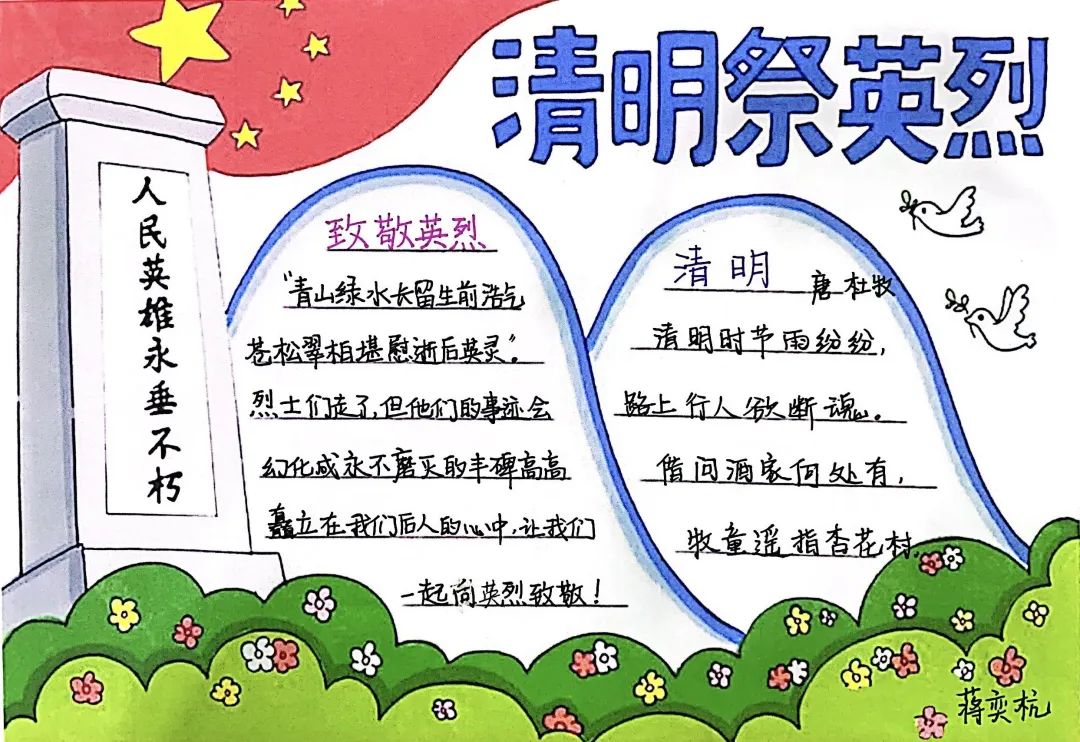 清明祭英烈
人民英雄永垂不朽
致敬英烈
“青山绿水长留生前浩气
苍松翠柏堪慰逝后英灵”。
烈士们走了,但他们的事迹会
幻化成永不磨灭的丰碑高高
矗立在我们后人的心中,让我们
一起向英烈致敬!
清明 唐 杜牧
清明时节雨纷纷,
路上行人欲断魂。
借问酒家何处有,
牧童遥指杏花村。
蒋奕杭